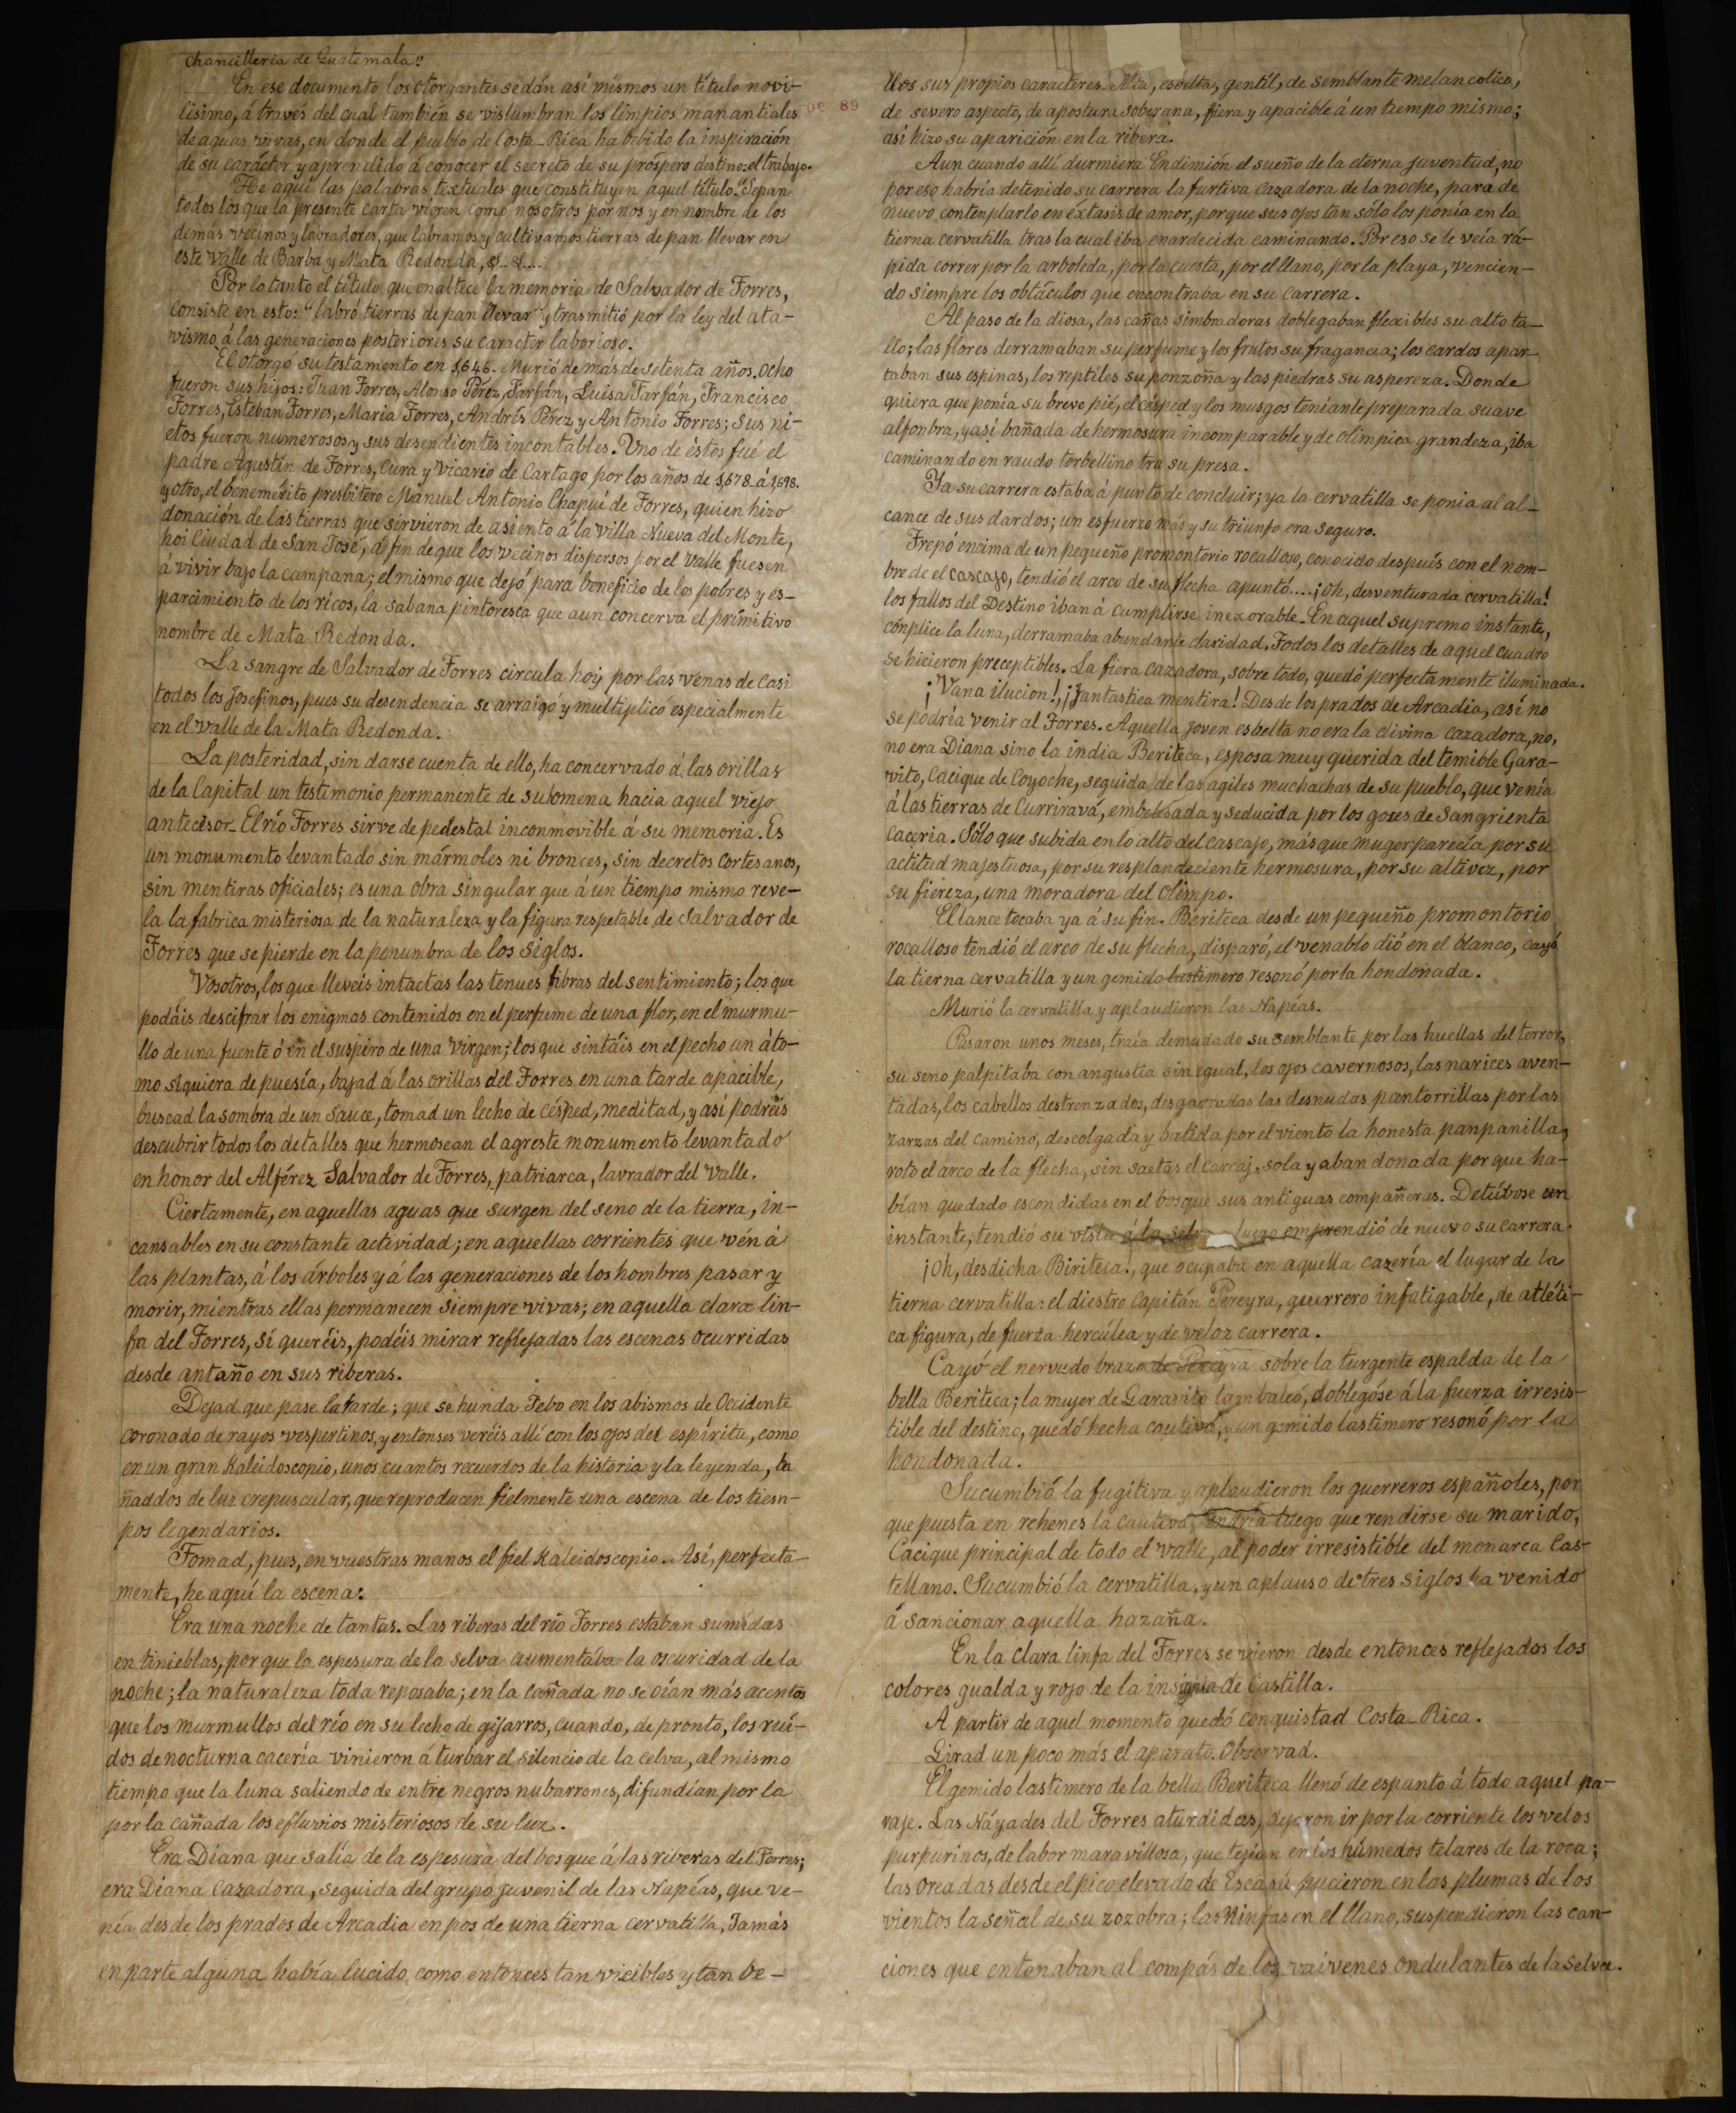 Chancilleria de Guatemala."
En ese documento los otorgantes se dán así mismos un título novi-
lísimo, á través del cual también se vislumbran los limpios manantiales
de aguas vivas, en donde el pueblo de Costa-Rica ha bebido la inspiración
de su carácter y aprendido á conocer el secreto de su próspero destino: el trabajo.
He aquí las palabras textuales que constituyen aquel título. "Sepan
todos los que la presente carta vieren como nosotros por nos y en nombre de los
demás vecinos y labradores, que labramos y cultivamos tierras de pan llevar en
este Valle de Barba y Mata Redonda, &. &....
Por lo tanto el título que enaltece la memoria de Salvador de Torres,
consiste en esto: "labró tierras de pan llevar" y trasmitió por la ley del ata-
vismo á las generaciones posteriores su caracter laborioso.
El otorgó su testamento en 1,646. Murió de más de setenta años. Ocho
fueron sus hijos: Juan Torres, Alonso Pérez, Farfán, Luisa Farfán, Francisco
Torres, Esteban Torres, Maria Torres, Andrés Pérez y Antonio Torres; sus ni-
etos fueron numerosos y sus desendientes incontables. Uno de éstos fué el
padre Agustín de Torres, Cura y Vicario de Cartago por los años de 1,678 á 1,698.
y otro, el benemérito presbítero Manuel Antonio Chapuí de Torres, quien hizo
donación de las tierras que sirvieron de asiento á la Villa Nueva del Monte,
hoi Ciudad de San José, á fin de que los vecinos dispersos por el Valle fuesen
á vivir bajo la campana; el mismo que dejó para beneficio de los pobres y es-
parcimiento de los ricos, la sabana pintoresca que aun concerva el primitivo
nombre de Mata Redonda.
La sangre de Salvador de Torres circula hoy por las venas de casi
todos los Josefinos, pues su desendencia se arraigó y multiplicó especialmente
en el Valle de la Mata Redonda.
La posteridad, sin darse cuenta de ello, ha concervado á las orillas
de la Capital un testimonio permanente de su omena hacia aquel viejo
antecesor. El río Torres sirve de pedestal inconmovible á su memoria. Es
un monumento levantado sin mármoles ni bronces, sin decretos cortesanos,
sin mentiras oficiales; es una obra singular que á un tiempo mismo reve-
la la fabrica misteriosa de la naturaleza y la figura respetable de Salvador de
Torres que se pierde en la penumbra de los siglos.
Vosotros, los que llevéis intactas las tenues fibras del sentimiento; los que
podáis descifrar los enigmas contenidos en el perfume de una flor, en el murmu-
llo de una fuente ó en el suspiro de una virgen; los que sintáis en el pecho un áto-
mo siquiera de puesía, bajad á las orillas del Torres en una tarde apacible,
buscad la sombra de un sauce, tomad un lecho de césped, meditad, y así podréis
descubrir todos los detalles que hermosean el agreste monumento levantado
en honor del Alférez Salvador de Torres, patriarca, lavrador del Valle.
Ciertamente, en aquellas aguas que surgen del seno de la tierra, in-
cansables en su constante actividad; en aquellas corrientes que vén á
las plantas, á los árboles y á las generaciones de los hombres pasar y
morir, mientras ellas permanecen siempre vivas; en aquella clara lin-
fa del Torres, si queréis, podéis mirar reflejadas las escenas ocurridas
desde antaño en sus riberas.
Dejad que pase la tarde; que se hunda Febo en los abismos de Occidente
coronado de rayos vespertinos, y entonses veréis allí con los ojos del espíritu, como
en un gran Kaleidoscopio, unos cuantos recuerdos de la historia y la leyenda, ba
ñaddos de luz crepuscular, que reproducen fielmente una escena de los tiem-
pos legendarios.
Tomad, pues, en vuestras manos el fiel Kaleidoscopio. Así, perfecta-
mente, he aquí la escena:
Era una noche de tantas. Las riberas del río Torres estaban sumidas
en tinieblas, por que la espesura de la selva aumentaba la oscuridad de la
noche; la naturaleza toda reposaba; en la cañada no se oían más acentos
que los murmullos del río en su lecho de gijarros, cuando, de pronto, los ruí-
dos de nocturna cacería vinieron á turbar el silencio de la celva, al mismo
tiempo que la luna saliendo de entre negros nubarrones, difundían por la
por la cañada los efluvios misteriosos de su luz.
Era Diana que salía de la espesura del bosque á las riveras del Torres;
era Diana Cazadora, seguida del grupo juvenil de las Napéas, que ve-
nía desde los prados de Arcadia en pos de una tierna cervatilla, Jamás
en parte alguna había lucido como entonces tan viciblos y tan be-
llos sus propios caracteres. Alta, esvelta, gentíl, de semblante melancolico,
de severo aspecto, de apostura soberana, fiera y apacible á un tiempo mismo;
así hizo su aparición en la ribera.
Aun cuando allí durmiera Endimión el sueño de la eterna juventud, no
por eso habría detenido su carrera la furtiva cazadora de la noche, para de
nuevo contemplarlo en éxtasis de amor, porque sus ojos tan sólo los ponía en la
tierna cervatilla tras la cual iba enardecida caminando. Por eso se le veía rá-
pida correr por la arboleda, por la cuesta, por el llano, por la playa, vencien-
do siempre los obtáculos que encontraba en su carrera.
Al paso de la diosa, las cañas simbradoras doblegaban flexibles su alto ta-
llo; las flores derramaban su perfume y los frutos su fragancia; los cardos apar-
taban sus espinas, los reptiles su ponzoña y las piedras su aspereza. Donde
quiera que ponía su breve pié, el césped y los musgos teníanle preparada suave
alfonbra, y así bañada de hermosura incomparable y de olímpica grandeza, iba
caminando en raudo torbellino tra su presa.
Ya su carrera estaba á punto de concluir; ya la cervatilla se ponia al al-
cance de sus dardos; un esfuerzo más y su triunfo era seguro.
Trepó encima de un pequeño promontorio rocalloso, conocido después con el nom-
bre de el cascajo, tendió el arco de su flecha apuntó.....¡Oh, desventurada cervatilla!
los fallos del Destino iban á cumplirse inexorable. En aquel supremo instante,
cónplice la luna, derramaba abundante claridad. Todos los detalles de aquel cuadro
se hicieron preceptibles. La fiera cazadora, sobre todo, quedó perfectamente iluminada.
¡Vana ilucion!, ¡fantastica mentira! Desde los prados de Arcadia, así no
se podría venir al Torres. Aquella joven esbelta no era la divina cazadora, no,
no era Diana sino la india Beriteca, esposa muy querida del temible Gara-
vito, Cacique de Coyoche, seguida de las agiles muchachas de su pueblo, que venía
á las tierras de Curriravá, embelesada y seducida por los goses de Sangrienta
caceria. Sólo que subida en lo alto del cascajo, más que muger parecía por su
actitud majestuosa, por su resplandeciente hermosura, por su altivez, por
su fiereza, una moradora del olimpo.
El lance tocaba ya á su fin. Beriteca desde un pequeño promontorio
rocalloso tendió el arco de su flecha, disparó, el venablo dió en el blanco, cayó
la tierna cervatilla y un gemido lastimero resonó por la hondonada.
Murió la cervatilla y aplaudieron las Napéas.
Pasaron unos meses, traía demudado su semblante por las huellas del terror,
su seno palpitaba con angustia sin egual, los ojos cavernosos, las narices aven-
tadas, los cabellos destrenzados, desgarradas las desnudas pantorrillas por las
zarzas del camino, descolgada y batida por el viento la honesta panpanilla,
roto el arco de la flecha, sin saetas el carcaj, sola y abandonada por que ha-
bían quedado escondidas en el bosque sus antiguas compañeras. Detúbose un
instante, tendió su vista á la selva luego emprendió de nuevo su carrera.
¡Oh, desdicha Biriteca!, que ocupaba en aquella cazería el lugar de la
tierna cervatilla: el diestro Capitán Pereyra, guerrero infatigable, de atléti-
ca figura, de fuerza hercúlea y de veloz currera.
Cayó el nervudo brazo de Pereyra sobre la turgente espalda de la
bella Beriteca; la mujer de Garavito tambaleó, doblegóse á la fuerza irresis-
tible del destino, quedó hecha cautiva, y un gemido lastimero resonó por la
hondonada.
Sucumbió la fugitiva y aplaudieron los guerreros españoles, por
que puesta en rehenes la cautiva, tendría luego que rendirse su marido,
Cacique principal de todo el valle, al poder irresistible del monarca Cas-
tellano. Sucumbió la cervatilla, y un aplauso de tres siglos ha venido
á sancionar aquella hazaña.
En la clara linfa del Torres se vieron desde entonces reflejados los
colores gualda y rojo de la insignia de Castilla.
A partir de aquel momento quedó conquistad Costa-Rica.
Girad un poco más el aparato. Observad.
El gemido lastimero de la bella Beriteca llenó de espanto á todo aquel pa-
raje. Las Náyades del Torres aturdidas, dejaron ir por la corriente los velos
purpurinos, de labor maravillosa, que tejían en los húmedos telares de la roca;
las Oreadas desde el pico elevado de Escasú pucieron en las plumas de los
vientos la señal de su zozobra; las Ninfas en el llano, suspendieron las can-
ciones que entonaban al compás de los vaivenes ondulantes de la Selva.